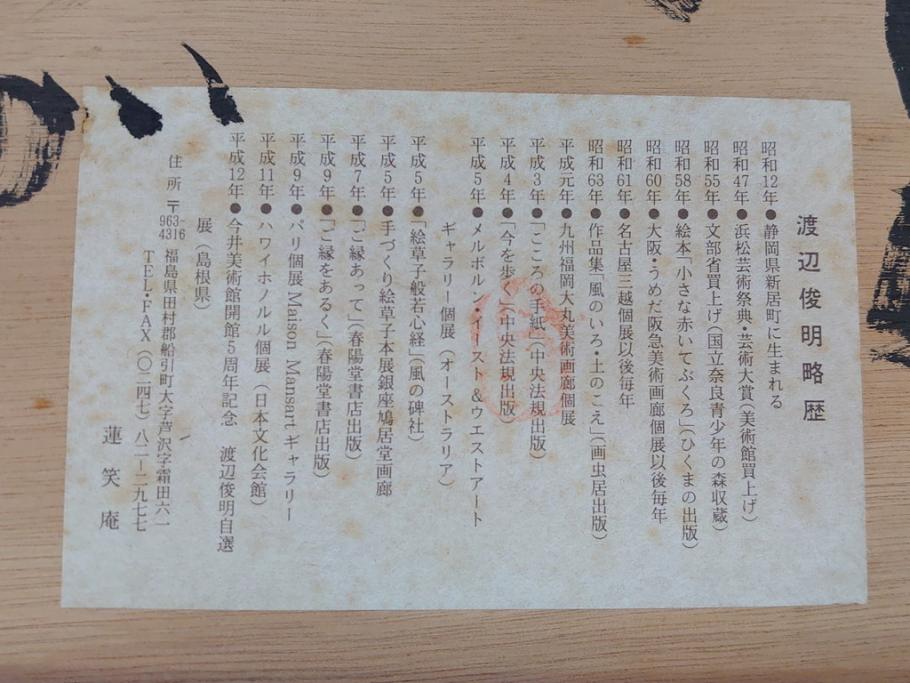 渡辺俊明略歴
昭和12年●静岡県新居町に生まれる
昭和47年●浜松芸術祭典・芸術大賞(美術館買上げ)
昭和55年●文部省買上げ(国立奈良青少年の森収蔵)
昭和58年●絵本「小さな赤いてぶくろ」(ひくまの出版)
昭和60年●大阪・うめだ阪急美術画廊個展以後毎年
昭和61年●名古屋三越個展以後毎年
昭和63年●作品集「風のいろ・土のこえ」(画虫居出版)
平成元年●九州福岡大丸美術画廊個展
平成3年●「こころの手紙」(中央法規出版)
平成4年●「今を歩く」(中央法規出版)
平成5年●メルボルン・イースト&ウエストアート
ギャラリー個展(オーストラリア)
平成5年●「絵草子般若心経」(風の碑社)
平成5年●手づくり絵草子本展銀座鳩居堂画廊
平成7年●「ご縁あって」(春陽堂書店出版)
平成9年●「ご縁をあるく」(春陽堂書店出版)
平成9年●パリ個展Maison Mansartギャラリー
平成11年●ハワイホノルル個展(日本文化会館)
平成12年●今井美術館開館5周年記念 渡辺俊明自選
展(島根県)
住所 〒963-4316 福島県田村郡船引町大字芦沢字霜田六一
TEL・FAX(〇二四七)八二ー二九七七
蓮笑庵